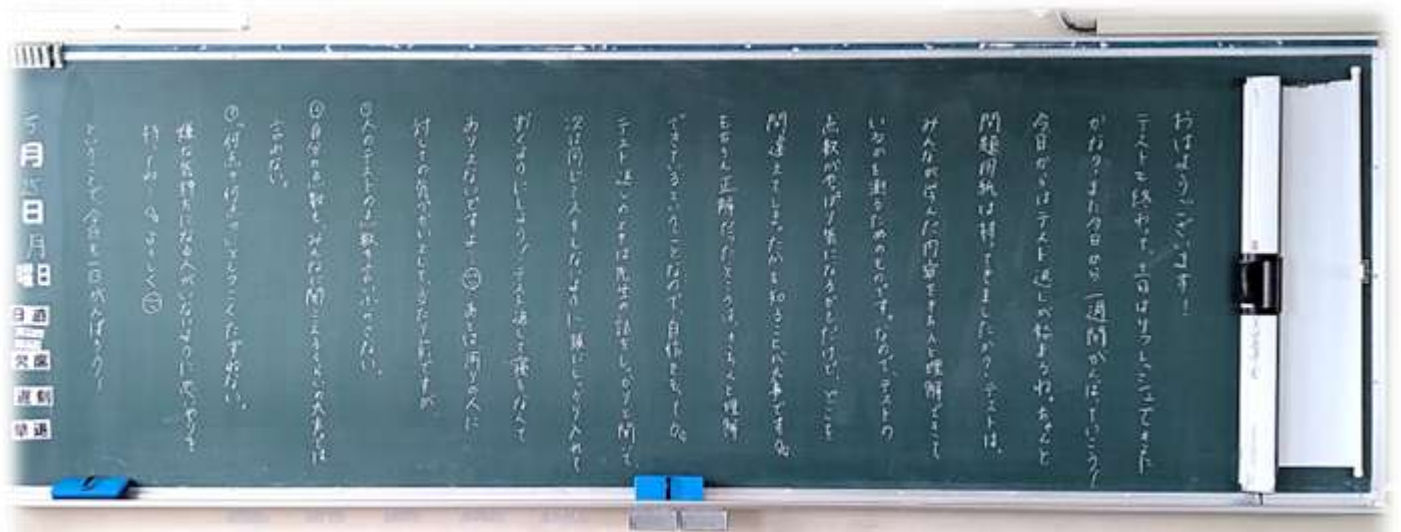 おはようございます！
テストも終わって、土日はリフレッシュできた
かな？また今日から一週間がんばっていこう！
今日からはテスト返しが始まるね。ちゃんと
問題用紙は持ってきましたか？テストは、
みんなが学んだ内容をきちんと理解できて
いるかを測るためのものです。なので、テストの
点数がやっぱり気になるかもだけど、どこを
間違えてしまったかを知ることが大事です。
もちろん正解だったところは、きちんと理解
できているということなので自信をもって。
テスト返しのときは先生の話をしっかりと聞いて
次は同じミスをしないように頭にしっかり入れて
おくようにしよう！テスト返しで寝るなんて
ありえないですよ
あとは周りの人に
対しての気づかいとして当たり前ですが、
①人のテストの点数をのぞかない。
②自分の点数を、みんなに聞こえるくらいの大声では
言わない。
③「何点？何点？」としつこくたずねない。
嫌な気持ちになる人がいないように思いやりを
持ってね。よろしく
ということで今日も一日がんばろう！
月
日
月
曜日
日直
欠席
遅刻
早退